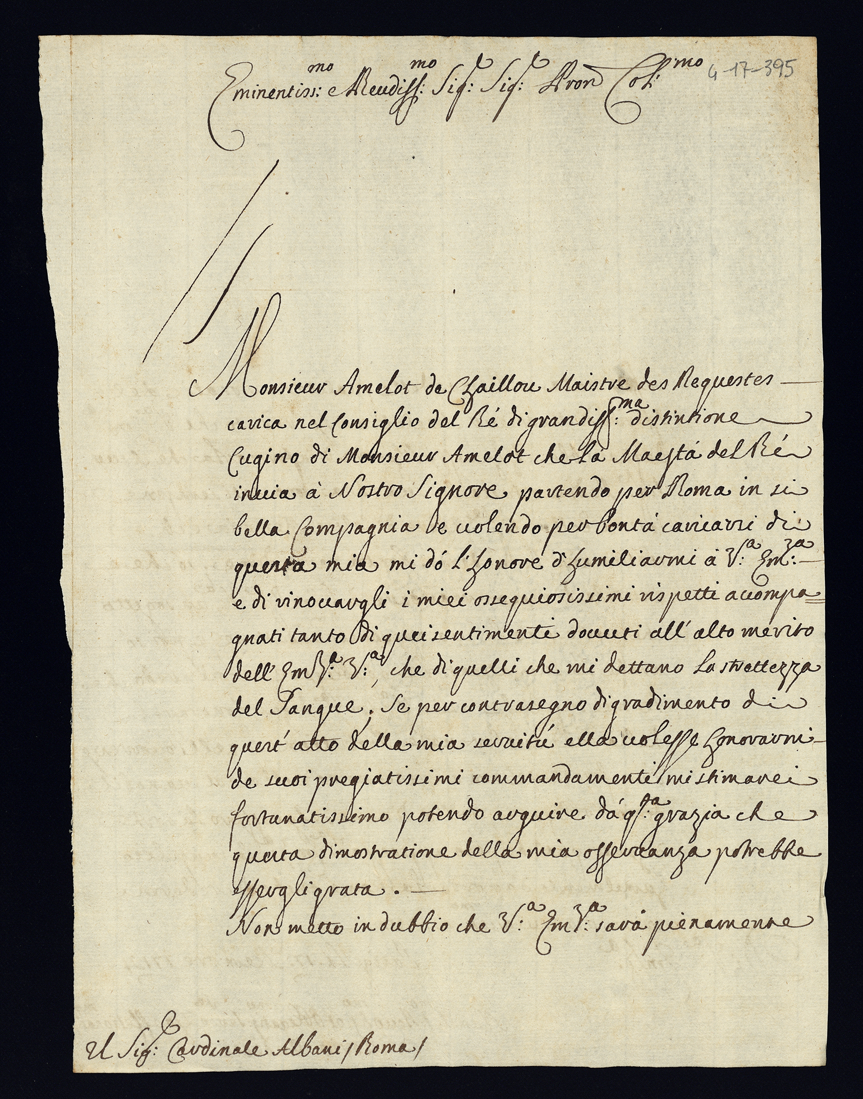 Eminentiss:mo e Reudiss:mo Sig:r Sig:r Pron Col:mo
4-17-395
Monsieur Amelot de Chaillou Maistre des Requestes
carica nel Consiglio del Ré di grandiss:ma distintione
Cugino di Monsieur Amelot che la Maestá del Ré
inuia à Nostro Signore, partendo per Roma in si
bella Compagnia e uolendo per bontá caricarsi di
questa mia mi dó l'honore d'humiliarmi á V:a Em:za
e di rinouargli i miei ossequiosissimi rispetti accompa=
gnati tanto di quei sentimenti douuti all'alto merito
dell'Em:za V:a, che di quelli che mi dettano la strettezza
del Sangue. Se per contrasegno di gradimento di
quest'atto della mia seruitú ella uolesse honorarmi
de suoi pregiatissimi commandamenti mi stimarei
fortunatissimo potendo arguire dá q:sta grazia che
questa dimostratione della mia osseruanza potrebbe
essergli grata.
Non metto in dubbio che V:a Em:za sará pienamente
Il Sig:r Cardinale Albani / Roma /